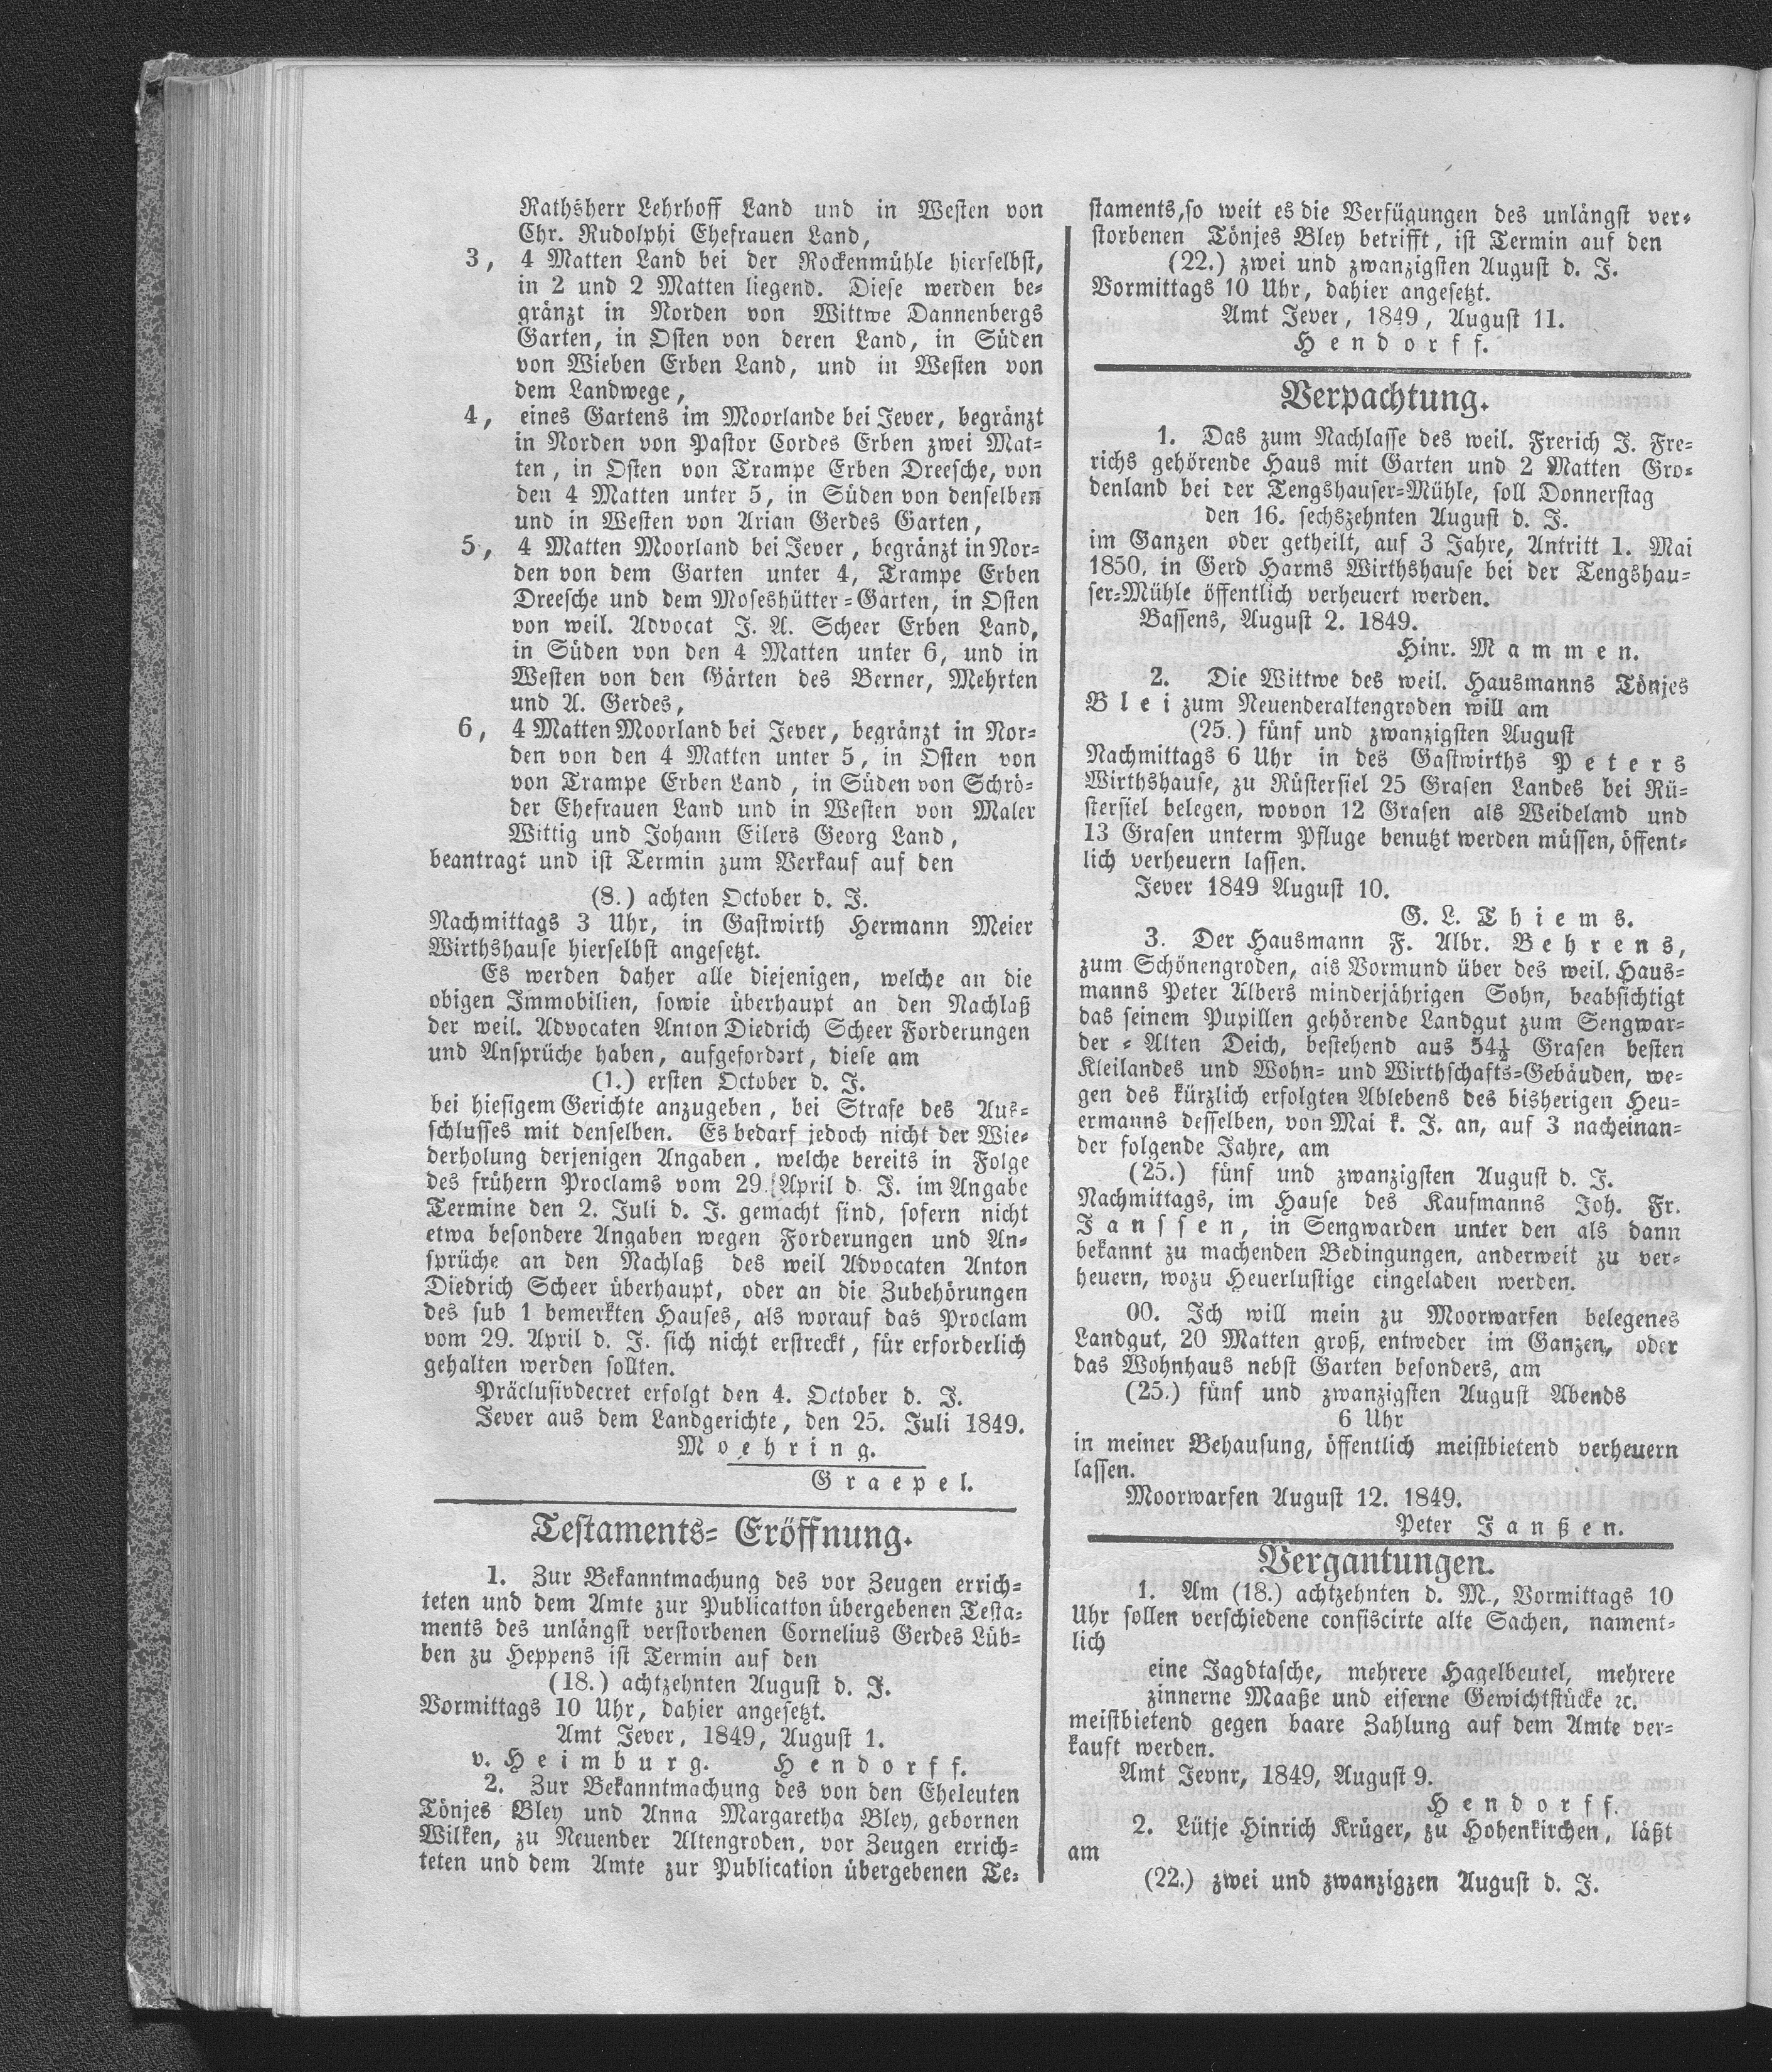 Rathsherr Lehrhoff Land und in Westen von
Chr. Rudolphi Ehefrauen Land,
3, 4 Matten Land bei der Rockenmühle hierselbst,
in 2 und 2 Matten liegend. Diese werden be-
gränzt in Norden von Wittwe Dannenbergs
Garten, in Osten von deren Land, in Süden
von Wieben Erben Land, und in Westen von
dem Landwege,
4, eines Gartens im Moorlande bei Jever, begränzt
in Norden von Pastor Cordes Erben zwei Mat-
ten, in Osten von Trampe Erben Dreesche, von
den 4 Matten unter 5, in Süden von denselben
und in Westen von Arian Gerdes Garten,
5, 4 Matten Moorland bei Jever, begränzt in Nor-
den von dem Garten unter 4, Trampe Erben
Dreesche und dem Moseshütter-Garten, in Osten
von weil. Advocat J. A. Scheer Erben Land,
in Süden von den 4 Matten unter 6, und in
Westen von den Gärten des Berner, Mehrten
und A. Gerdes,
6, 4 Matten Moorland bei Jever, begränzt in Nor-
den von den 4 Matten unter 5, in Osten von
von Trampe Erben Land, in Süden von Schrö-
der Ehefrauen Land und in Westen von Maler
Wittig und Johann Eilers Georg Land,
beantragt und ist Termin zum Verkauf auf den
(8.) achten October d. J.
Nachmittags 3 Uhr, in Gastwirth Hermann Meier
Wirthshause hierselbst angesetzt.
Es werden daher alle diejenigen, welche an die
obigen Immobilien, sowie überhaupt an den Nachlaß
der weil. Advocaten Anton Diedrich Scheer Forderungen
und Ansprüche haben, aufgefordert, diese am
(1.) ersten October d. J.
bei hiesigem Gerichte anzugeben, bei Strafe des Aus-
schlusses mit denselben. Es bedarf jedoch nicht der Wie-
derholung derjenigen Angaben, welche bereits in Folge
des frühern Proclams vom 29. April d. J. im Angabe
Termine den 2. Juli d. J. gemacht sind, sofern nicht
etwa besondere Angaben wegen Forderungen und An-
sprüche an den Nachlaß des weil Advocaten Anton
Diedrich Scheer überhaupt, oder an die Zubehörungen
des sub 1 bemerkten Hauses, als worauf das Proclam
vom 29. April d. J. sich nicht erstreckt, für erforderlich
gehalten werden sollten.
Präclusivdecret erfolgt den 4. October d. J.
Jever aus dem Landgerichte, den 25. Juli 1849.
Moehring.
Graepel.
Testaments-Eröffnung.
1. Zur Bekanntmachung des vor Zeugen errich-
teten und dem Amte zur Publicatton übergebenen Testa-
ments des unlängst verstorbenen Cornelius Gerdes Lüb-
ben zu Heppens ist Termin auf den
(18.) achtzehnten August d. J.
Vormittags 10 Uhr, dahier angesetzt.
Amt Jever, 1849, August 1.
v. Heimburg. Hendorff.
2. Zur Bekanntmachung des von den Eheleuten
Tönjes Bley und Anna Margaretha Bley, gebornen
Wilken, zu Neuender Altengroden, vor Zeugen errich-
teten und dem Amte zur Publication übergebenen Te-
staments, so weit es die Verfügungen des unlängst ver-
storbenen Tönjes Bley betrifft, ist Termin auf den
(22.) zwei und zwanzigsten August d. J.
Vormittags 10 Uhr, dahier angesetzt.
Amt Jever, 1849, August 11.
Hendorff.
Verpachtung.
1. Das zum Nachlasse des weil. Frerich J. Fre-
richs gehörende Haus mit Garten und 2 Matten Gro-
denland bei der Tengshauser-Mühle, soll Donnerstag
den 16. sechszehnten August d. J.
im Ganzen oder getheilt, auf 3 Jahre, Antritt 1. Mai
1850, in Gerd Harms Wirthshause bei der Tengshau-
ser-Mühle öffentlich verheuert werden.
Bassens, August 2. 1849.
Hinr. Mammen.
2. Die Wittwe des weil. Hausmanns Tönjes
Blei zum Neuenderaltengroden will am
(25.) fünf und zwanzigsten August
Nachmittags 6 Uhr in des Gastwirths Peters
Wirthshause, zu Rüstersiel 25 Grasen Landes bei Rü-
stersiel belegen, wovon 12 Grasen als Weideland und
13 Grasen unterm Pfluge benutzt werden müssen, öffent-
lich verheuern lassen.
Jever 1849 August 10.
G. L. Thiems.
3. Der Hausmann F. Albr. Behrens,
zum Schönengroden, als Vormund über des weil. Haus-
manns Peter Albers minderjährigen Sohn, beabsichtigt
das seinem Pupillen gehörende Landgut zum Sengwar-
der-Alten Deich, bestehend aus 54½ Grasen besten
Kleilandes und Wohn- und Wirthschafts-Gebäuden, we-
gen des kürzlich erfolgten Ablebens des bisherigen Heu-
ermanns desselben, von Mai k. J. an, auf 3 nacheinan-
der folgende Jahre, am
(25.) fünf und zwanzigsten August d. J.
Nachmittags, im Hause des Kaufmanns Joh. Fr.
Janssen, in Sengwarden unter den als dann
bekannt zu machenden Bedingungen, anderweit zu ver-
heuern, wozu Heuerlustige eingeladen werden.
00. Ich will mein zu Moorwarfen belegenes
Landgut, 20 Matten groß, entweder im Ganzen, oder
das Wohnhaus nebst Garten besonders, am
(25.) fünf und zwanzigsten August Abends
6 Uhr
in meiner Behausung, öffentlich meistbietend verheuern
lassen.
Moorwarfen August 12. 1849.
Peter Janßen.
Vergantungen.
1. Am (18.) achtzehnten d. M., Vormittags 10
Uhr sollen verschiedene confiscirte alte Sachen, nament-
lich
eine Jagdtasche, mehrere Hagelbeutel, mehrere
zinnerne Maaße und eiserne Gewichtstücke ꝛc.
meistbietend gegen baare Zahlung auf dem Amte ver-
kauft werden.
Amt Jevnr, 1849, August 9.
Hendorff.
2. Lütje Hinrich Krüger, zu Hohenkirchen, läßt
am
(22.) zwei und zwanzigzen August d. J.